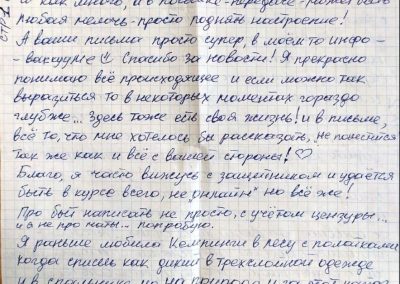 СТР 2
то как много, и в посылке-передаче - может быть
любая мелочь - просто поднять настроение!
А ваши письма просто супер, в моём то инфо-
-вакууме☺ Спасибо за новости! Я прекрасно
понимаю всё происходящее и если можно так
выразиться то в некоторых моментах гораздо
глубже... Здесь тоже есть своя жизнь! и в письме,
всё то, что мне хотелось бы рассказать, не поместится
так же как и всё с вашей стороны! ♡
Благо, я часто вижусь с защитником и удаётся
быть в курсе всего, не онлайн* но всё же!
Про быт написать не просто, с учётом цензуры...
... попробую.
Я раньше любила Кемпинги в лесу с палатками
когда спишь как дикий в трехслойной одежде
и в спальнике но на природе и за этот